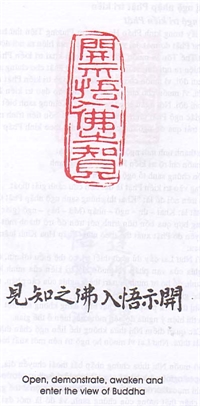 開示悟入佛之知見
開示悟入佛之知見
Open, demonstrate, awaken and
enter the view of Buddha